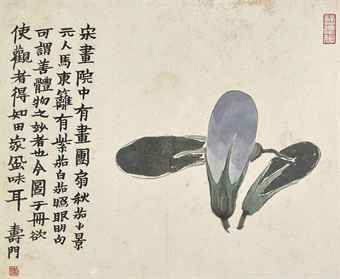 宋畫院中有畫團扇秋茄小景
元人馬東籬有紫茄白茄照眼明句
可謂善體物之妙者也今圖于冊欲
使觀者得知田家風味耳 壽門